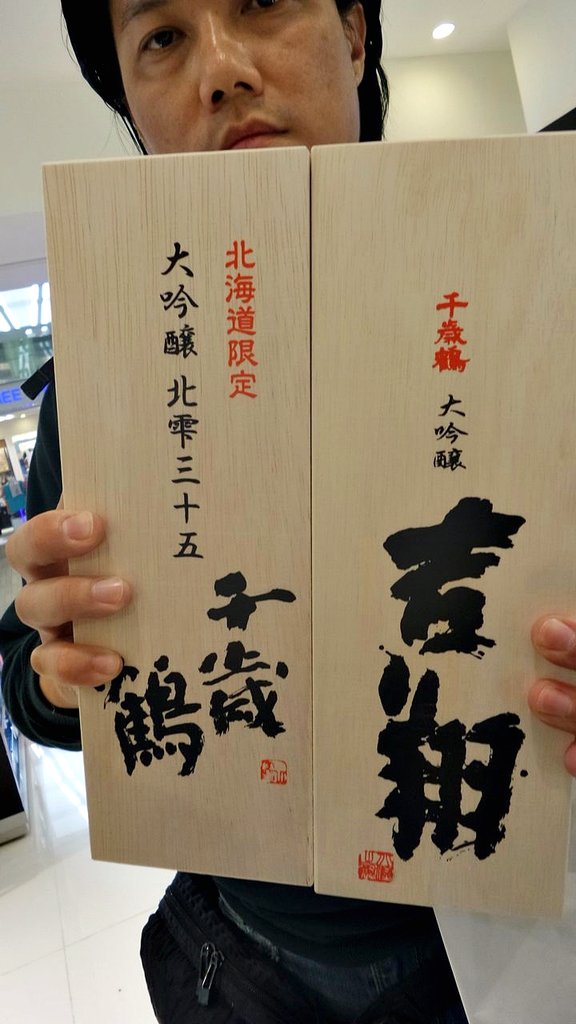 北海道限定
大吟醸 北雫三十五
千歳
鶴
千歳鶴
大吟醸
吉翔